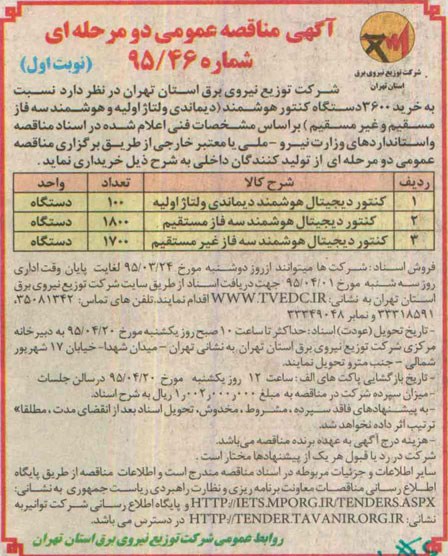 آگهی مناقصه عمومی دو مرحله ای
شماره ۹۵/۴۶
(نوبت اول)
شرکت توزیع نیروی برق
استان تهران
شرکت توزیع نیروی برق استان تهران در نظر دارد نسبت
به خرید ۳۶۰۰دستگاه کنتور هوشمند (دیماندی ولتاژ اولیه و هوشمند سه فاز
مستقیم و غیر مستقیم ) بر اساس مشخصات فنی اعلام شده در اسناد مناقصه
واستانداردهای وزارت نیرو -ملی یا معتبر خارجی از طریق برگزاری مناقصه
عمومی دو مرحله ای از تولید کنندگان داخلی به شرح ذیل خریداری نماید.
ردیف شرح کالا تعداد واحد
۱ کنتور دیجیتال هوشمند دیماندی ولتاژ اولیه ۱۰۰ دستگاه
۲ کنتور دیجیتال هوشمند سه فاز مستقیم ۱۸۰۰ دستگاه
۳ کنتور دیجیتال هوشمند سه فاز غیر مستقیم ۱۷۰۰ دستگاه
فروش اسناد: شرکت ها میتوانند از روز دوشنبه مورخ ۹۵/۰۳/۲۴ لغایت پایان وقت اداری
روز سه شنبه مورخ ۹۵/۰۴/۰۱ جهت دریافت اسناد از طریق سایت شرکت توزیع نیروی برق
استان تهران به نشانی: WWW.TVEDC.IR اقدام نمایند.تلفن های تماس: ۳۵۰۸۱۳۴۲،
۳۳۳۱۸۵۹۱ و نمابر ۳۳۳۴۹۰۴۸
-تاریخ تحویل (عودت) اسناد: حداکثر تا ساعت ۱۰ صبح روز یکشنبه مورخ ۹۵/۰۴/۲۰ به دبیرخانه
مرکزی شرکت توزیع نیروی برق استان تهران به نشانی تهران - میدان شهدا- خیابان ۱۷ شهریور
شمالی - جنب مترو تحویل نمایند.
-تاریخ بازگشایی پاکت های الف: ساعت ۱۲ روز یکشنبه مورخ ۹۵/۰۴/۲۰ در سالن جلسات
-میزان سپرده شرکت در مناقصه به مبلغ ۱٫۰۰۲٫۰۰۰٫۰۰۰ ریال به شرح اسناد.
-به پیشنهادهای فاقد سپرده ، مشروط ، مخدوش ، تحویل اسناد بعد از انقضای مدت ، مطلقا"
ترتیب اثر داده نخواهد شد.
-هزینه درج آگهی به عهده برنده مناقصه می‌باشد.
شرکت در رد یا قبول هر یک از پیشنهادها مختار است .
سایر اطلاعات و جزئیات مربوطه در اسناد مناقصه مندرج است و اطلاعات مناقصه از طریق پایگاه
اطلاع رسانی مناقصات معاونت برنامه ریزی و نظارت راهبردی ریاست جمهوری به نشانی:
HTTP://IETS.MPORG.IR/TENDERS.ASPX و پایگاه اطلاع رسانی شرکت توانیر به
نشانی: HTTP://TENDER.TAVANIR.ORG.IR در دسترس می باشد.
روابط عمومی شرکت توزیع نیروی برق استان تهران